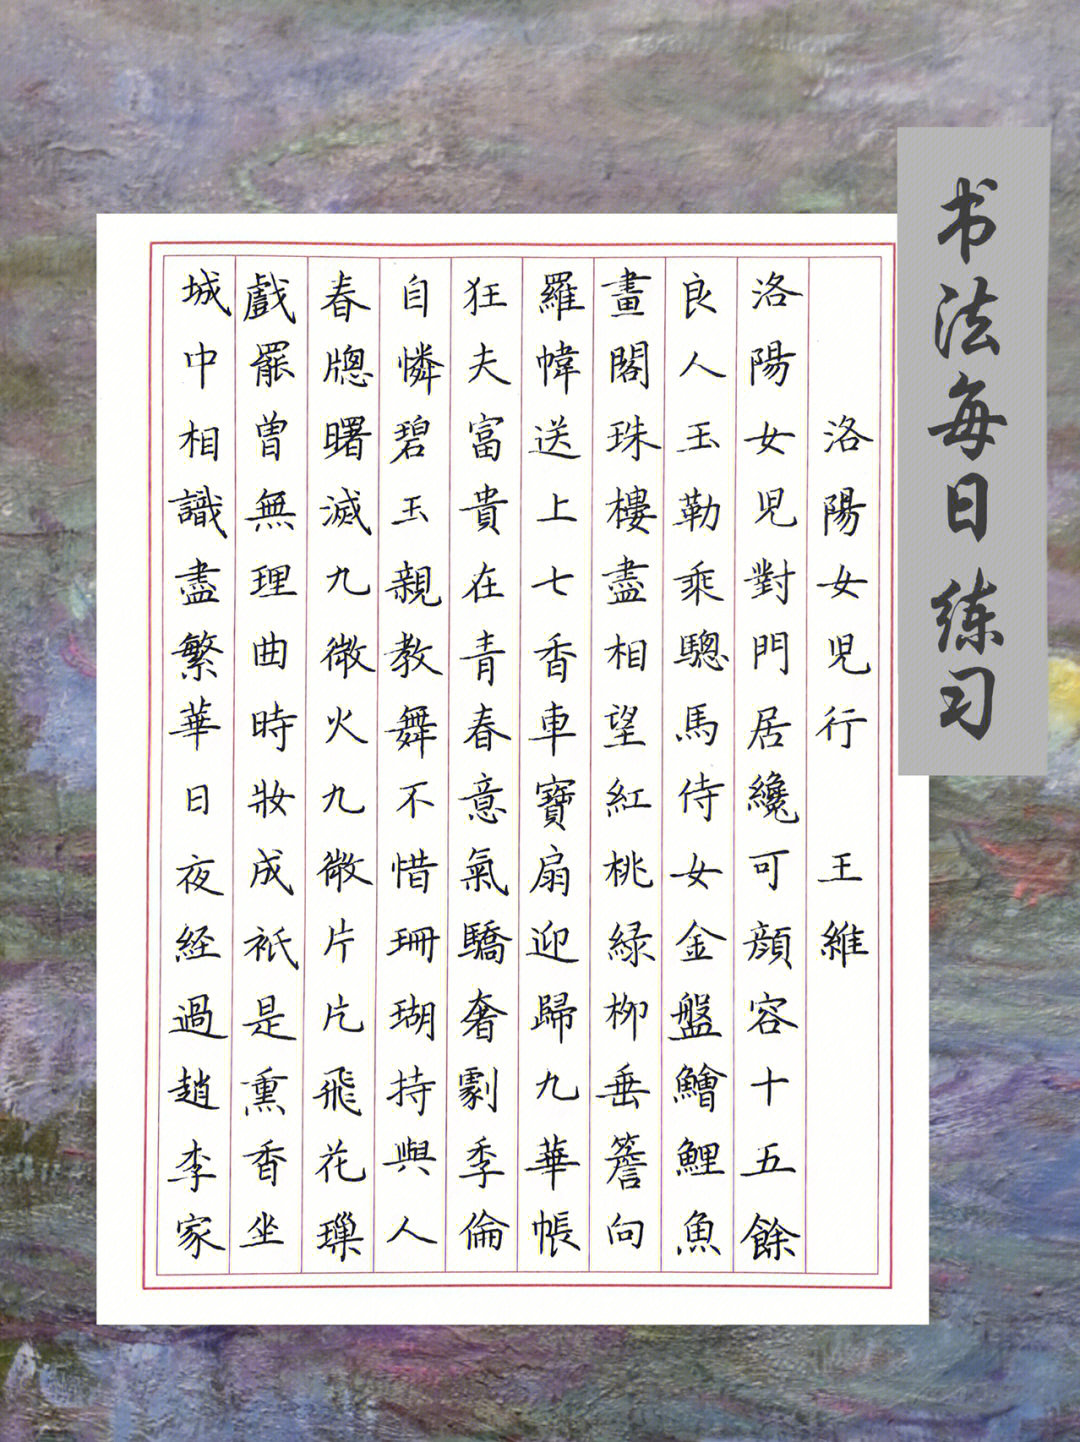 书法每日练习
洛陽女児行 王維
洛陽女児對門居纔可顔容十五餘
良人玉勒乘驄馬侍女金盤鱠鯉魚
畫閣珠樓盡相望紅桃緑柳垂簷向
羅幃送上七香車寶扇迎歸九華帳
狂夫富貴在青春意氣驕奢劇季倫
自憐碧玉親教舞不惜珊瑚持與人
春牕曙滅九微火九微片片飛花璅
戲罷曾無理曲時妝成衹是熏香坐
城中相識盡繁華日夜経過趙李家